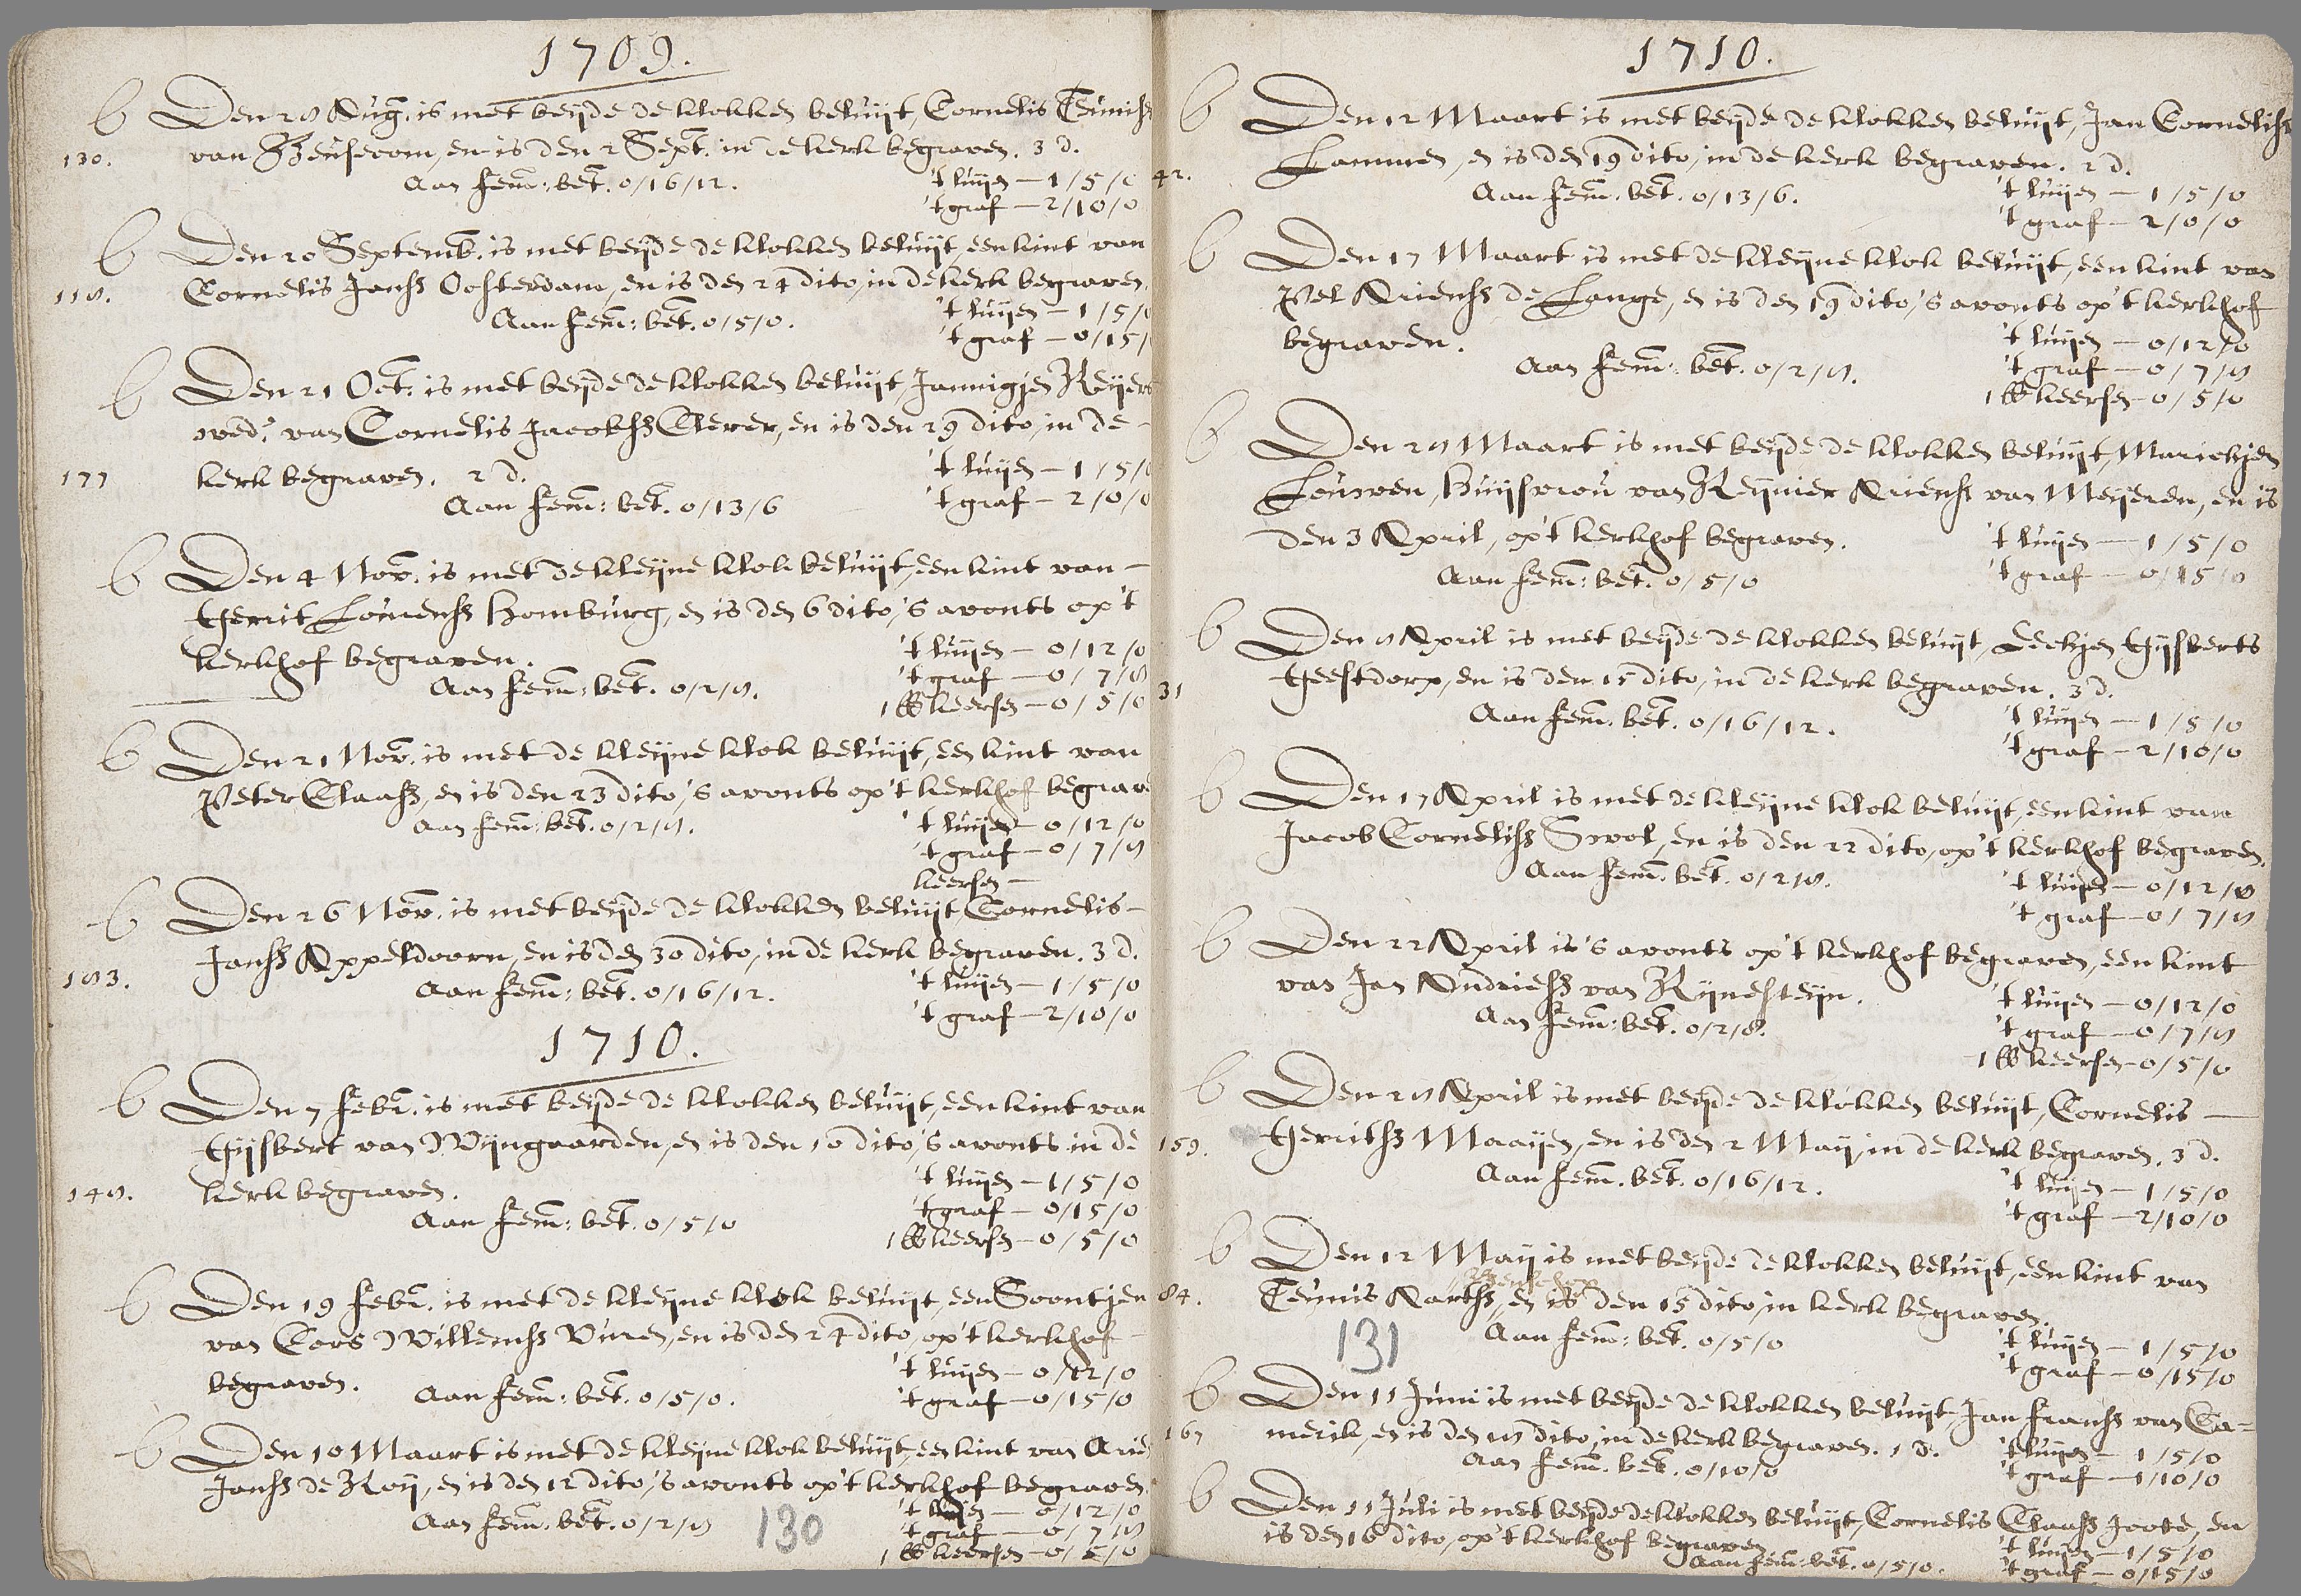 1709.
b Den 28 Aug. is met beijde de klokken beluijt, Cornelis Teunisz
130. van Beusecom, en is den 2 Sept. in de kerk begraven. 3 d.
Aan Fem: bet. 0/16/12. 't luijen — 1/5/0
't graf — 2/10/0
b Den 20 Septemb. is met beijde de klokken beluijt, een kint van
118. Cornelis Jansz Oosterdam, en is den 24 dito, in de kerk begraven.
Aan Fem: bet. 0/5/0. 't luijen — 1/5/0
't graf — 0/15/
b Den 21 Oct. is met beijde de klokken beluijt, Jannigjen Reijers
wed.e van Cornelis Jacobsz Clever, en is den 29 dito, in de -
177 kerk begraven. 2 d. 't luijen — 1/5/0
Aan Fem: bet. 0/13/6 't graf — 2/0/0
b Den 4 Nov. is met de kleijne klok beluijt, een kint van -
Gerrit Lourensz Homburg, en is den 6 dito, 's avonts op 't
kerkhof begraven. 't luijen — 0/12/0
Aan Fem: bet. 0/2/8. 't graf — 0/7/8
1 ℔ keersen — 0/5/0
b Den 21 Nov. is met de kleijne klok beluijt, een kint van
Peter Claasz, en is den 23 dito, 's avonts op 't kerkhof begrave
Aan Fem: bet. 0/2/8. 't luijen — 0/12/0
't graf — 0/7/8
keersen —
b Den 26 Nov. is met beijde de klokken beluijt, Cornelis -
Jansz Appeldoorn, en is den 30 dito, in de kerk begraven. 3 d.
183. Aan Fem: bet. 0/16/12. 't luijen — 1/5/0
't graf — 2/10/0
1710.
b Den 7 Febr. is met beijde de klokken beluijt, een kint van
Gijsbert van Wijngaarden, en is den 10 dito, 's avonts in de
148. kerk begraven. 't luijen — 1/5/0
Aan Fem: bet. 0/5/0 't graf — 0/15/0
1 ℔ keersen — 0/5/0
b Den 19 Febr. is met de kleijne klok beluijt, een Soontjen
van Cors Willemsz Vuren, en is den 24 dito, op 't kerkhof -
begraven. 't luijen — 0/12/0
Aan Fem: bet. 0/5/0. 't graf — 0/15/0
b Den 10 Maart is met de kleijne klok beluijt, een kint van Arie
Jansz de Roij, en is den 12 dito, 's avonts op 't kerkhof begraven.
Aan Fem: bet. 0/2/8 't luijen — 0/12/0
't graf — 0/7/8
1 ℔ keersen — 0/5/0
130
1710.
b Den 12 Maart is met beijde de klokken beluijt, Jan Cornelisz
42. Lammen, en is den 19 dito, in de kerk begraven. 2 d.
Aan Fem: bet. 0/13/6. 't luijen — 1/5/0
't graf — 2/0/0
b Den 17 Maart is met de kleijne klok beluijt, een kint van
Pel Ariensz de Lange, en is den 19 dito, 's avonts op 't kerkhof
begraven. 't luijen — 0/12/0
Aan Fem: bet. 0/2/8. 't graf — 0/7/8
1 ℔ keersen — 0/5/0
b Den 28 Maart is met beijde de klokken beluijt, Mariehjen
Louwen, Huijsvrou van Reijnier Ariensz van Meijeren, en is
den 3 April, op 't kerkhof begraven. 't luijen — 1/5/0
Aan Fem: bet. 0/5/0 't graf — 0/15/0
b Den 8 April is met beijde de klokken beluijt, Eechjen Gijsberts
31 Geestdorp, en is den 15 dito, in de kerk begraven. 3 d.
Aan Fem: bet. 0/16/12. 't luijen — 1/5/0
't graf — 2/10/0
b Den 17 April is met de kleijne klok beluijt, een kint van
Jacob Cornelisz Swol, en is den 22 dito, op 't kerkhof begraven.
Aan Fem: bet. 0/2/8. 't luijen — 0/12/0
't graf — 0/7/8
b Den 22 April is 's avonts op 't kerkhof begraven, een kint
van Jan Andriesz van Rijnesteijn. 't luijen — 0/12/0
Aan Fem: bet. 0/2/8. 't graf — 0/7/8
1 ℔ keersen — 0/5/0
b Den 28 April is met beijde de klokken beluijt, Cornelis —
159. Gerritsz Maaijen, en is den 2 Maij, in de kerk begraven. 3 d.
Aan Fem: bet. 0/16/12. 't luijen — 1/5/0
't graf — 2/10/0
b Den 12 Maij is met beijde de klokken beluijt, een kint van
84. Teunis Aartsz, en is den 15 dito, in kerk begraven.
Aan Fem: bet. 0/5/0 't luijen — 1/5/0
131 't graf — 0/15/0
b Den 11 Juni is met beijde de klokken beluijt Jan Fransz van Ca=
167 merik, en is den 18 dito, in de kerk begraven. 1 d. 't luijen — 1/5/0
Aan Fem: bet. 0/10/0 't graf — 1/10/0
b Den 11 Juli is met beijde de klokken beluijt, Cornelis Claasz Joode, en
is den 16 dito, op 't kerkhof begraven. 't luijen — 1/5/0
Aan Fem: bet. 0/5/0. 't graf — 0/15/0